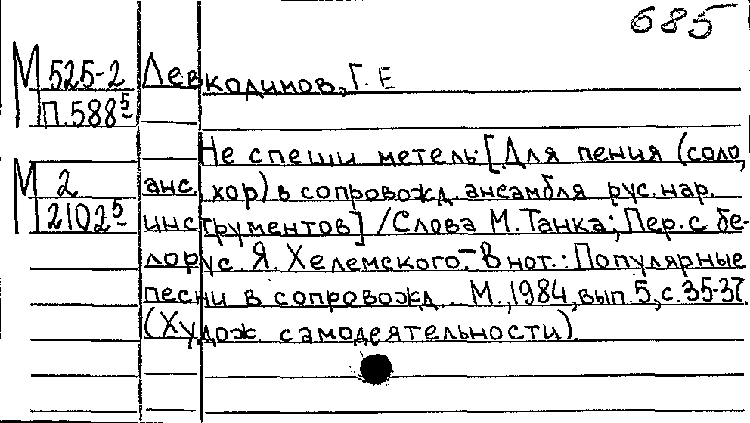 685
М 525-2
П.588⁵
Левкодимов, Г. Е
М 2
2102⁵
Не спеши метель: [Для пения (соло,
анс., хор) в сопровожд. ансамбля рус. нар.
инструментов] / Слова М. Танка; Пер. с бе-
лорус. Я. Хелемского. - В нот.: Популярные
песни в сопровожд... М., 1984, вып. 5, с. 35-37.
(Худож. самодеятельности)